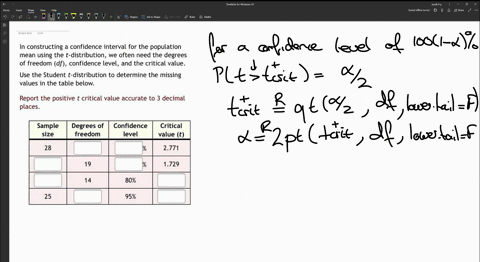 In constructing a confidence interval for the population
mean using the t-distribution, we often need the degrees
of freedom (df), confidence level, and the critical value.
Use the Student t-distribution to determine the missing
values in the table below.
Report the positive t critical value accurate to 3 decimal
places.
Sample size Degrees of freedom Confidence level Critical value (t)
28 % 2.771
19 % 1.729
14 80%
25 95%
for a confidence level of 100(1-α)%
P(t > t⁺crit) = α/2
t⁺crit R= qt(α/2, df, lower.tail=F)
α R= 2pt(t⁺crit, df, lower.tail=F